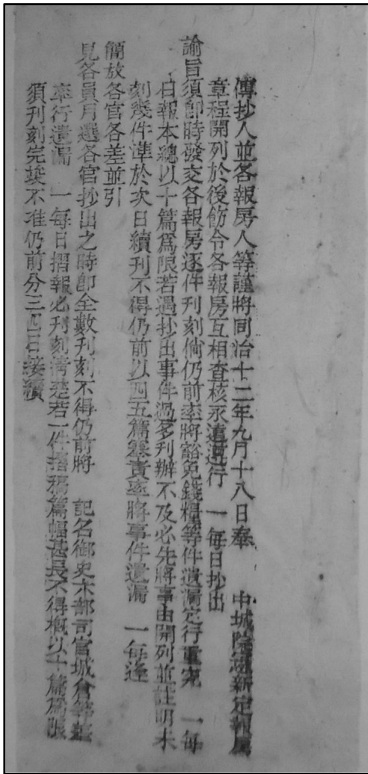 傳抄人並各報房人等謹將同治十二年九月十八日奉 中城院憲新定報房
章程開列於後飭令各報房互相查核永遠遵行 一每日抄出
諭旨須卽時發交各報房逐件刊刻倘仍前率將豁免錢糧等件遺漏定行重究 一每
日報本總以十篇爲限若遇抄出事件過多刊辦不及必先將事由開列並註明未
刻幾件準於次日續刊不得仍前以四五篇塞責率將事件遺漏 一每逢
簡放各官各差並引
見各員月選各官抄出之時卽全數刊刻不得仍前將 記名御史木部司官城倉等差
率行遺漏 一每日摺報必刊刻淸楚若一件摺稿篇幅甚長不得槪以十篇爲限
須刊刻完竣不准仍前分三四日接續